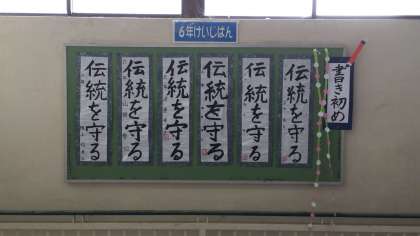 6年けいじばん
書き初め
伝統を守る
伝統を守る
伝統を守る
伝統を守る
伝統を守る
伝統を守る